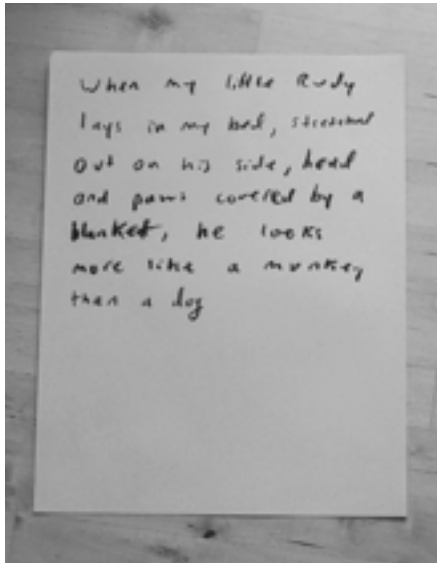 When my little Rudy
lays in my bed, stretched
out on his side, head
and paws covered by a
blanket, he looks
more like a monkey
than a dog